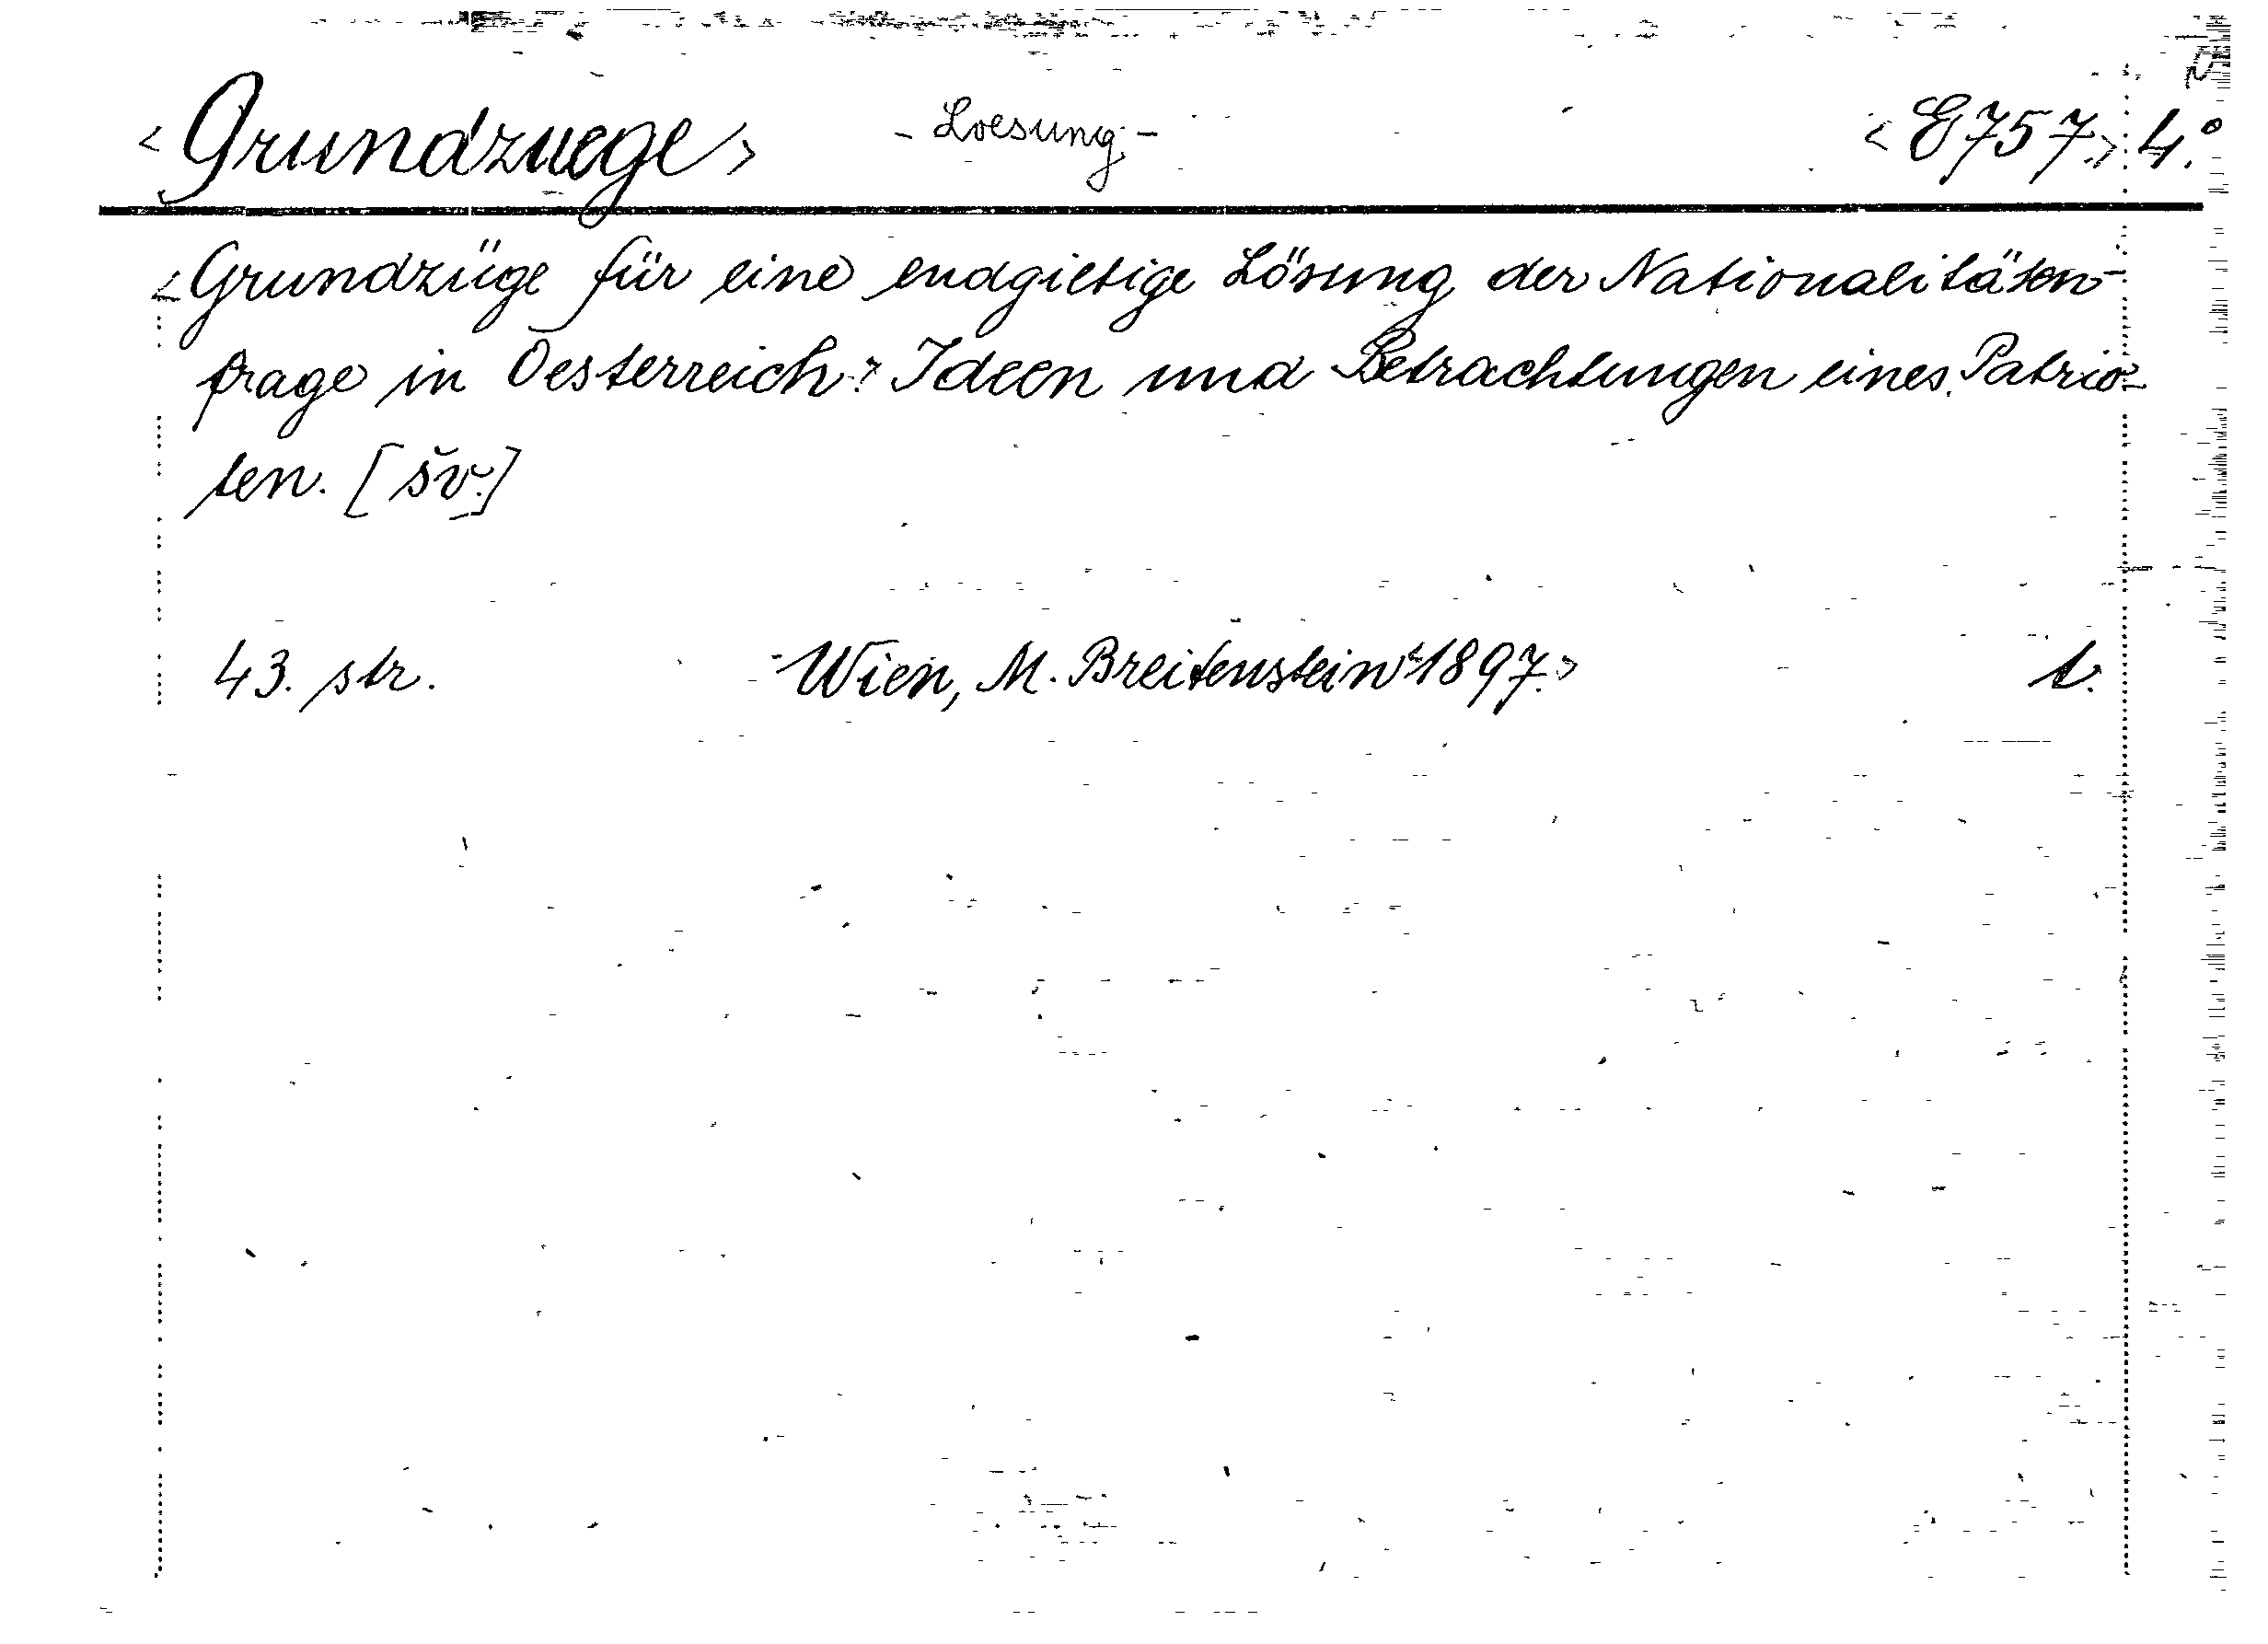 <Grundzuege> - Loesung - <E757> 4.°
<Grundzüge für eine endgiltige Lösung der Nationalitäten-
frage in Oesterreich. Ideen und Betrachtungen eines Patrio-
ten. [šv.]
43. str. Wien, M. Breitenstein <1897.> t.